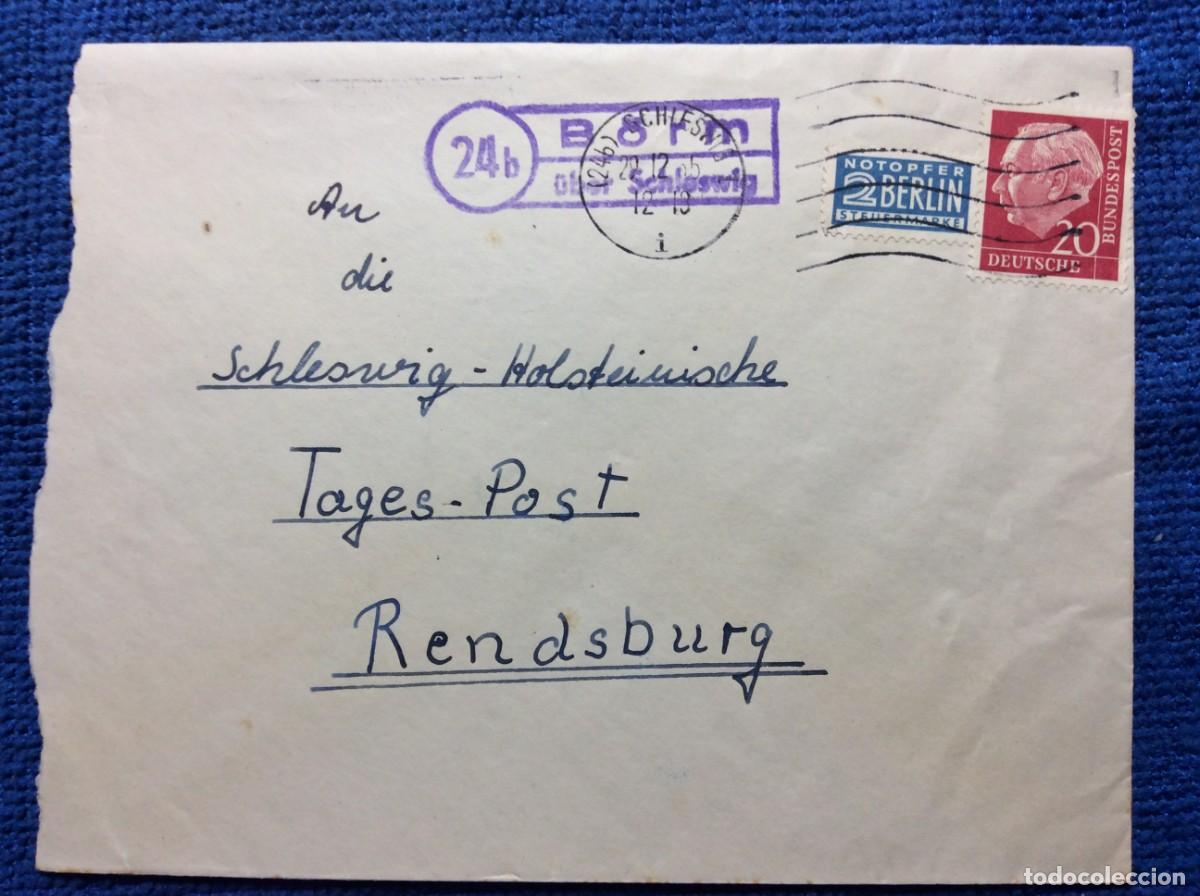 24b
Börm
über Schleswig
(24b) SCHLESWIG
12. 55
12-13
i
NOTOPFER
2 BERLIN
STEUERMARKE
20
DEUTSCHE
BUNDESPOST
An
die
Schleswig-Holsteinische
Tages-Post
Rendsburg
todocoleccion